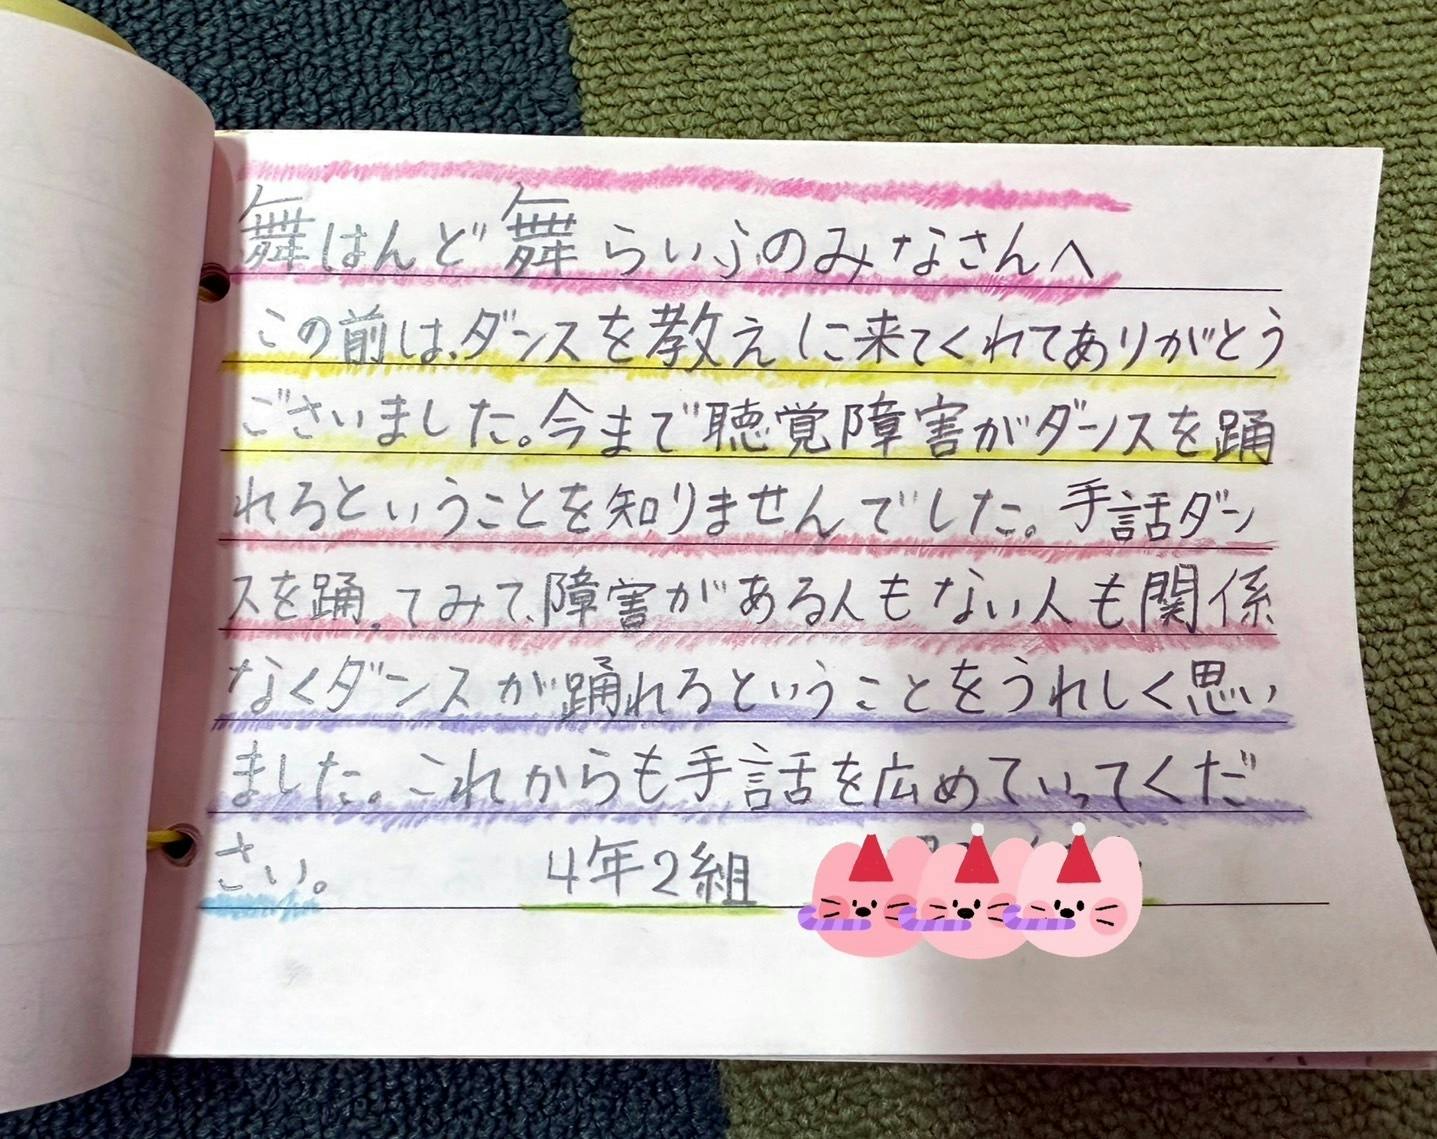 舞はんど舞らいふのみなさんへ
この前は、ダンスを教えに来てくれてありがとう
ございました。今まで聴覚障害がダンスを踊
れるということを知りませんでした。手話ダン
スを踊ってみて、障害がある人もない人も関係
なくダンスが踊れるということをうれしく思い
ました。これからも手話を広めていってくだ
さい。 4年2組